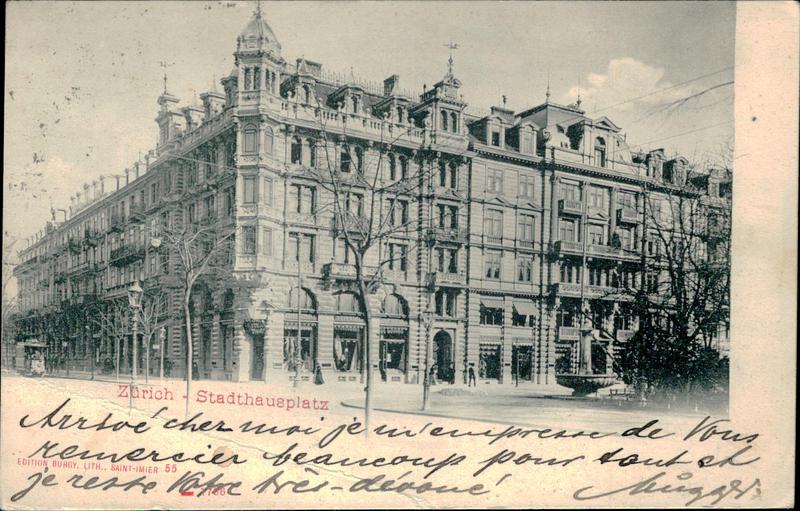 Zürich - Stadthausplatz
Arrivé cher moi je m'empresse de Vous
remercier beaucoup pour tout et
EDITION BURGY, LITH., SAINT-IMIER 55
je reste Votre très-dévoué
1786